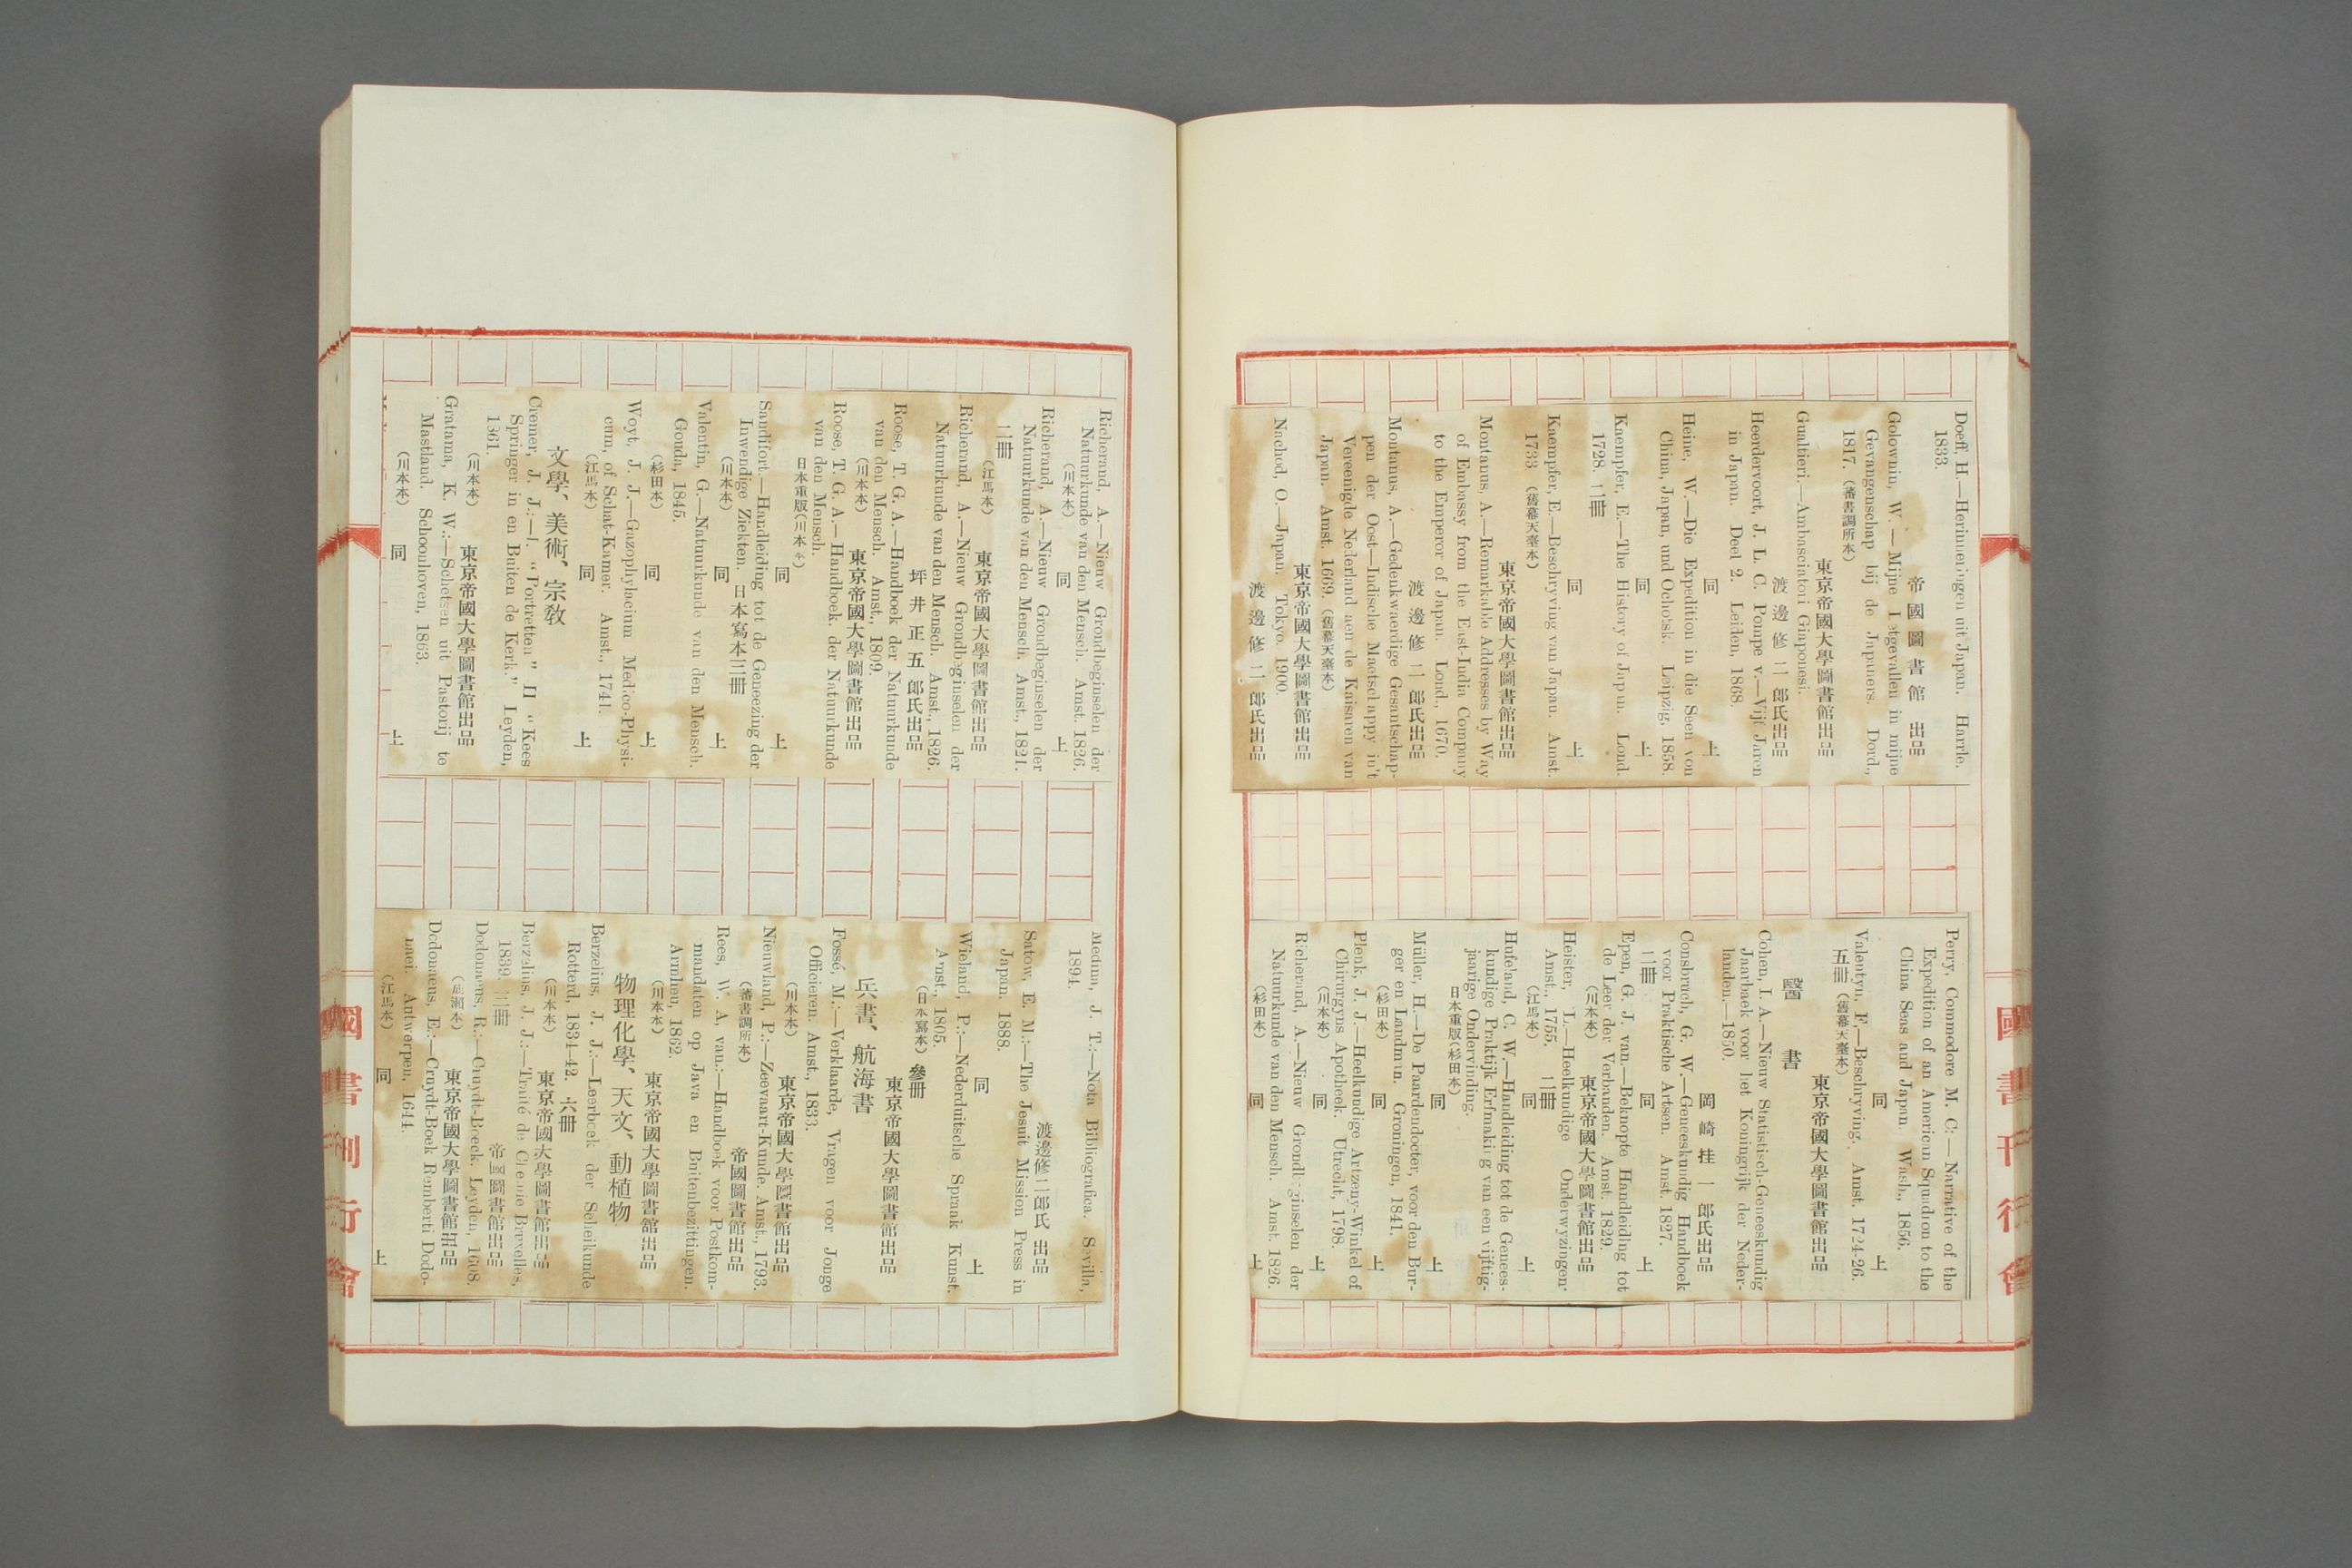 Doeff, H.—Herinneringen uit Japan. Harrle.
1833.
帝國圖書館出品
Golownin, W.—Mijne Lotgevallen in mijne
Gevangenschap bij de Japaners. Dord.,
1817.（蕃書調所本）
東京帝國大學圖書館出品
Gualtieri.—Ambasciatori Giaponesi.
渡邊修二郎氏出品
Heerdervoort, J. L. C. Pompe v.—Vijf Jaren
in Japan. Deel 2. Leiden, 1868.
同上
Heine, W.—Die Expedition in die Seen von
China, Japan, und Ochotsk. Leipzig, 1858.
同上
Kaempfer, E.—The History of Japan. Lond.
1728. 二冊
同上
Kaempfer, E.—Beschryving van Japan. Amst.
1733.（舊幕天臺本）
東京帝國大學圖書館出品
Montanus, A.—Remarkable Addresses by Way
of Embassy from the East-India Company
to the Emperor of Japan. Lond., 1670.
渡邊修二郎氏出品
Montanus, A.—Gedenkwaerdige Gesantschap-
pen der Oost—Indische Maetschappy in't
Vereenigde Nederland aen de Kaisaren van
Japan. Amst. 1669.（舊幕天臺本）
東京帝國大學圖書館出品
Nachod, O.—Japan. Tokyo. 1900.
渡邊修二郎氏出品
Perry, Commodore M. C:—Narrative of the
Expedition of an American Squadron to the
China Seas and Japan. Wash., 1856.
同上
Valentyn, F.—Beschryving. Amst. 1724-26.
五冊（舊幕天臺本）
東京帝國大學圖書館出品
醫書
Cohen, I. A.—Nieuw Statistisch-Geneeskundig
Jaarbaek voor het Koningrijk der Neder-
landen.—1850.
岡崎桂一郎氏出品
Consbruch, G. W.—Geneeskundig Handboek
voor Praktische Artsen. Amst. 1827.
二冊 同上
Epen, G. J. van.—Beknopte Handleiding tot
de Leer der Verbanden. Amst. 1829.
（川本本） 東京帝國大學圖書館出品
Heister, L.—Heelkundige Onderwyzingen
Amst., 1755. 二冊
（江馬本） 同上
Hufeland, C. W.—Handleiding tot de Genees-
kundige Praktijk Erfmaking van een vijftig-
jaarige Ondervinding.
日本重版（杉田本） 同上
Müller, H.—De Paardendocter, voor den Bur-
ger en Landman. Groningen, 1841.
（杉田本） 同上
Plenk, J. J.—Heelkundige Artzeny-Winkel of
Chirurgyns Apotheek. Utrecht, 1798.
（川本本） 同上
Richerand, A.—Nieuw Grondbeginselen der
Natuurkunde van den Mensch. Amst. 1826.
（杉田本） 同上
國書刊行會
Richerand, A.—Nieuw Grondbeginselen der
Natuurkunde van den Mensch. Amst. 1826.
（川本本） 同上
Richerand, A.—Nieuw Grondbeginselen der
Natuurkunde van den Mensch. Amst., 1821.
二冊
（江馬本） 東京帝國大學圖書館出品
Richerand, A.—Nieuw Grondbeginselen der
Natuurkunde van den Mensch. Amst., 1826.
坪井正五郎氏出品
Roose, T. G. A.—Handboek der Natuurkunde
van den Mensch. Amst., 1809.
（川本本） 東京帝國大學圖書館出品
Roose, T. G. A.—Handboek. der Natuurkunde
van den Mensch.
日本重版（川本本） 同上
Sandifort.—Handleiding tot de Geneezing der
Inwendige Ziekten. 日本寫本三冊
（川本本） 同上
Valentin, G.—Natuurkunde van den Mensch.
Gouda, 1845.
（杉田本） 同上
Woyt, J. J.—Gazophylacium Medico-Physi-
cum, of Schat-Kamer. Amst., 1741.
（江馬本） 同上
文學、美術、宗教
Cremer, J. J.:—I. “Portretten” II “Kees
Springer in en Buiten de Kerk.” Leyden,
1861.
（川本本） 東京帝國大學圖書館出品
Gratama, K. W.:—Schetsen uit Pastorij te
Mastland. Schoonhoven, 1863.
（川本本） 同上
Medina, J. T.:—Nota Bibliografica. Sevilla,
1894.
渡邊修二郎氏出品
Satow, E. M.:—The Jesuit Mission Press in
Japan. 1888.
同上
Wieland, P.:—Nederduitsche Spraak Kunst.
Amst., 1805.
（日本寫本）參冊
東京帝國大學圖書館出品
兵書、航海書
Fossé, M.:—Verklaarde, Vragen voor Jonge
Officieren. Amst., 1833.
（川本本） 東京帝國大學圖書館出品
Nieuwland, P.:—Zeevaart-Kunde. Amst., 1793.
（蕃書調所本） 帝國圖書館出品
Rees, W. A, van.:—Handboek voor Postkom-
mandaten op Java en Buitenbezittingen.
Arnhen, 1862.
（川本本） 東京帝國大學圖書館出品
物理化學、天文、動植物
Berzelius, J. J.:—Leerboek der Scheikunde
Rotterd, 1834-42. 六冊
（川本本） 東京帝國大學圖書館出品
Berzelius, J. J.:—Traité de Chemie Bruxelles,
1839. 三冊
帝國圖書館出品
Dodonaeus, R.:—Cruydt-Boeck. Leyden, 1608.
東京帝國大學圖書館出品
Dodonaeus, E.:—Cruydt-Boek Remberti Dodo-
naei. Antwerpen, 1644.
（江馬本） 同上
國書刊行會